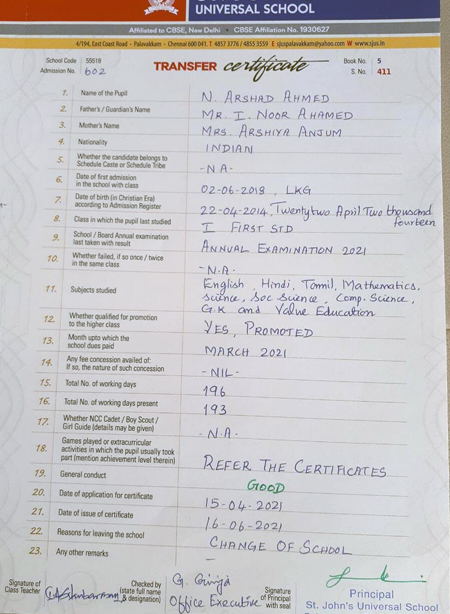 UNIVERSAL SCHOOL
Affiliated to CBSE, New Delhi • CBSE Affiliation No. 1930627
4/194, East Coast Road • Palavakkam • Chennai 600 041. T 4857 3776 / 4855 3559 E sjuspalavakkam@yahoo.com W www.sjus.in
School Code : 55518 Book No. 5
Admission No. 602 TRANSFER certificate S. No. 411
1. Name of the Pupil N. ARSHAD AHMED
2. Father's / Guardian's Name MR. I. NOOR AHAMED
3. Mother's Name MRS. ARSHIYA ANJUM
4. Nationality INDIAN
5. Whether the candidate belongs to
Schedule Caste or Schedule Tribe - N A -
6. Date of first admission
in the school with class 02-06-2018, LKG
7. Date of birth (in Christian Era)
according to Admission Register 22-04-2014, Twentytwo April Two thousand
fourteen
8. Class in which the pupil last studied I FIRST STD
9. School / Board Annual examination
last taken with result ANNUAL EXAMINATION 2021
10. Whether failed, if so once / twice
in the same class - N.A -
11. Subjects studied English, Hindi, Tamil, Mathematics,
Science, Soc Science, Comp. Science,
G.K and Value Education
12. Whether qualified for promotion
to the higher class YES, PROMOTED
13. Month upto which the
school dues paid MARCH 2021
14. Any fee concession availed of:
If so, the nature of such concession - NIL -
15. Total No. of working days 196
16. Total No. of working days present 193
17. Whether NCC Cadet / Boy Scout /
Girl Guide (details may be given) - N.A -
18. Games played or extracurricular
activities in which the pupil usually took
part (mention achievement level therein) REFER THE CERTIFICATES
19. General conduct GOOD
20. Date of application for certificate 15-04-2021
21. Date of issue of certificate 16-06-2021
22. Reasons for leaving the school CHANGE OF SCHOOL
23. Any other remarks -
Signature of
Class Teacher
Checked by
(state full name
& designation)
G. Girija
Office Executive
Signature
of Principal
with seal
Principal
St. John's Universal School